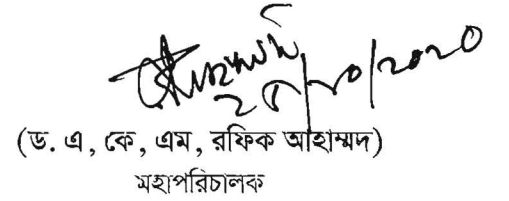 ২৫/১০/২০২০
(ড. এ, কে, এম, রফিক আহাম্মদ)
মহাপরিচালক